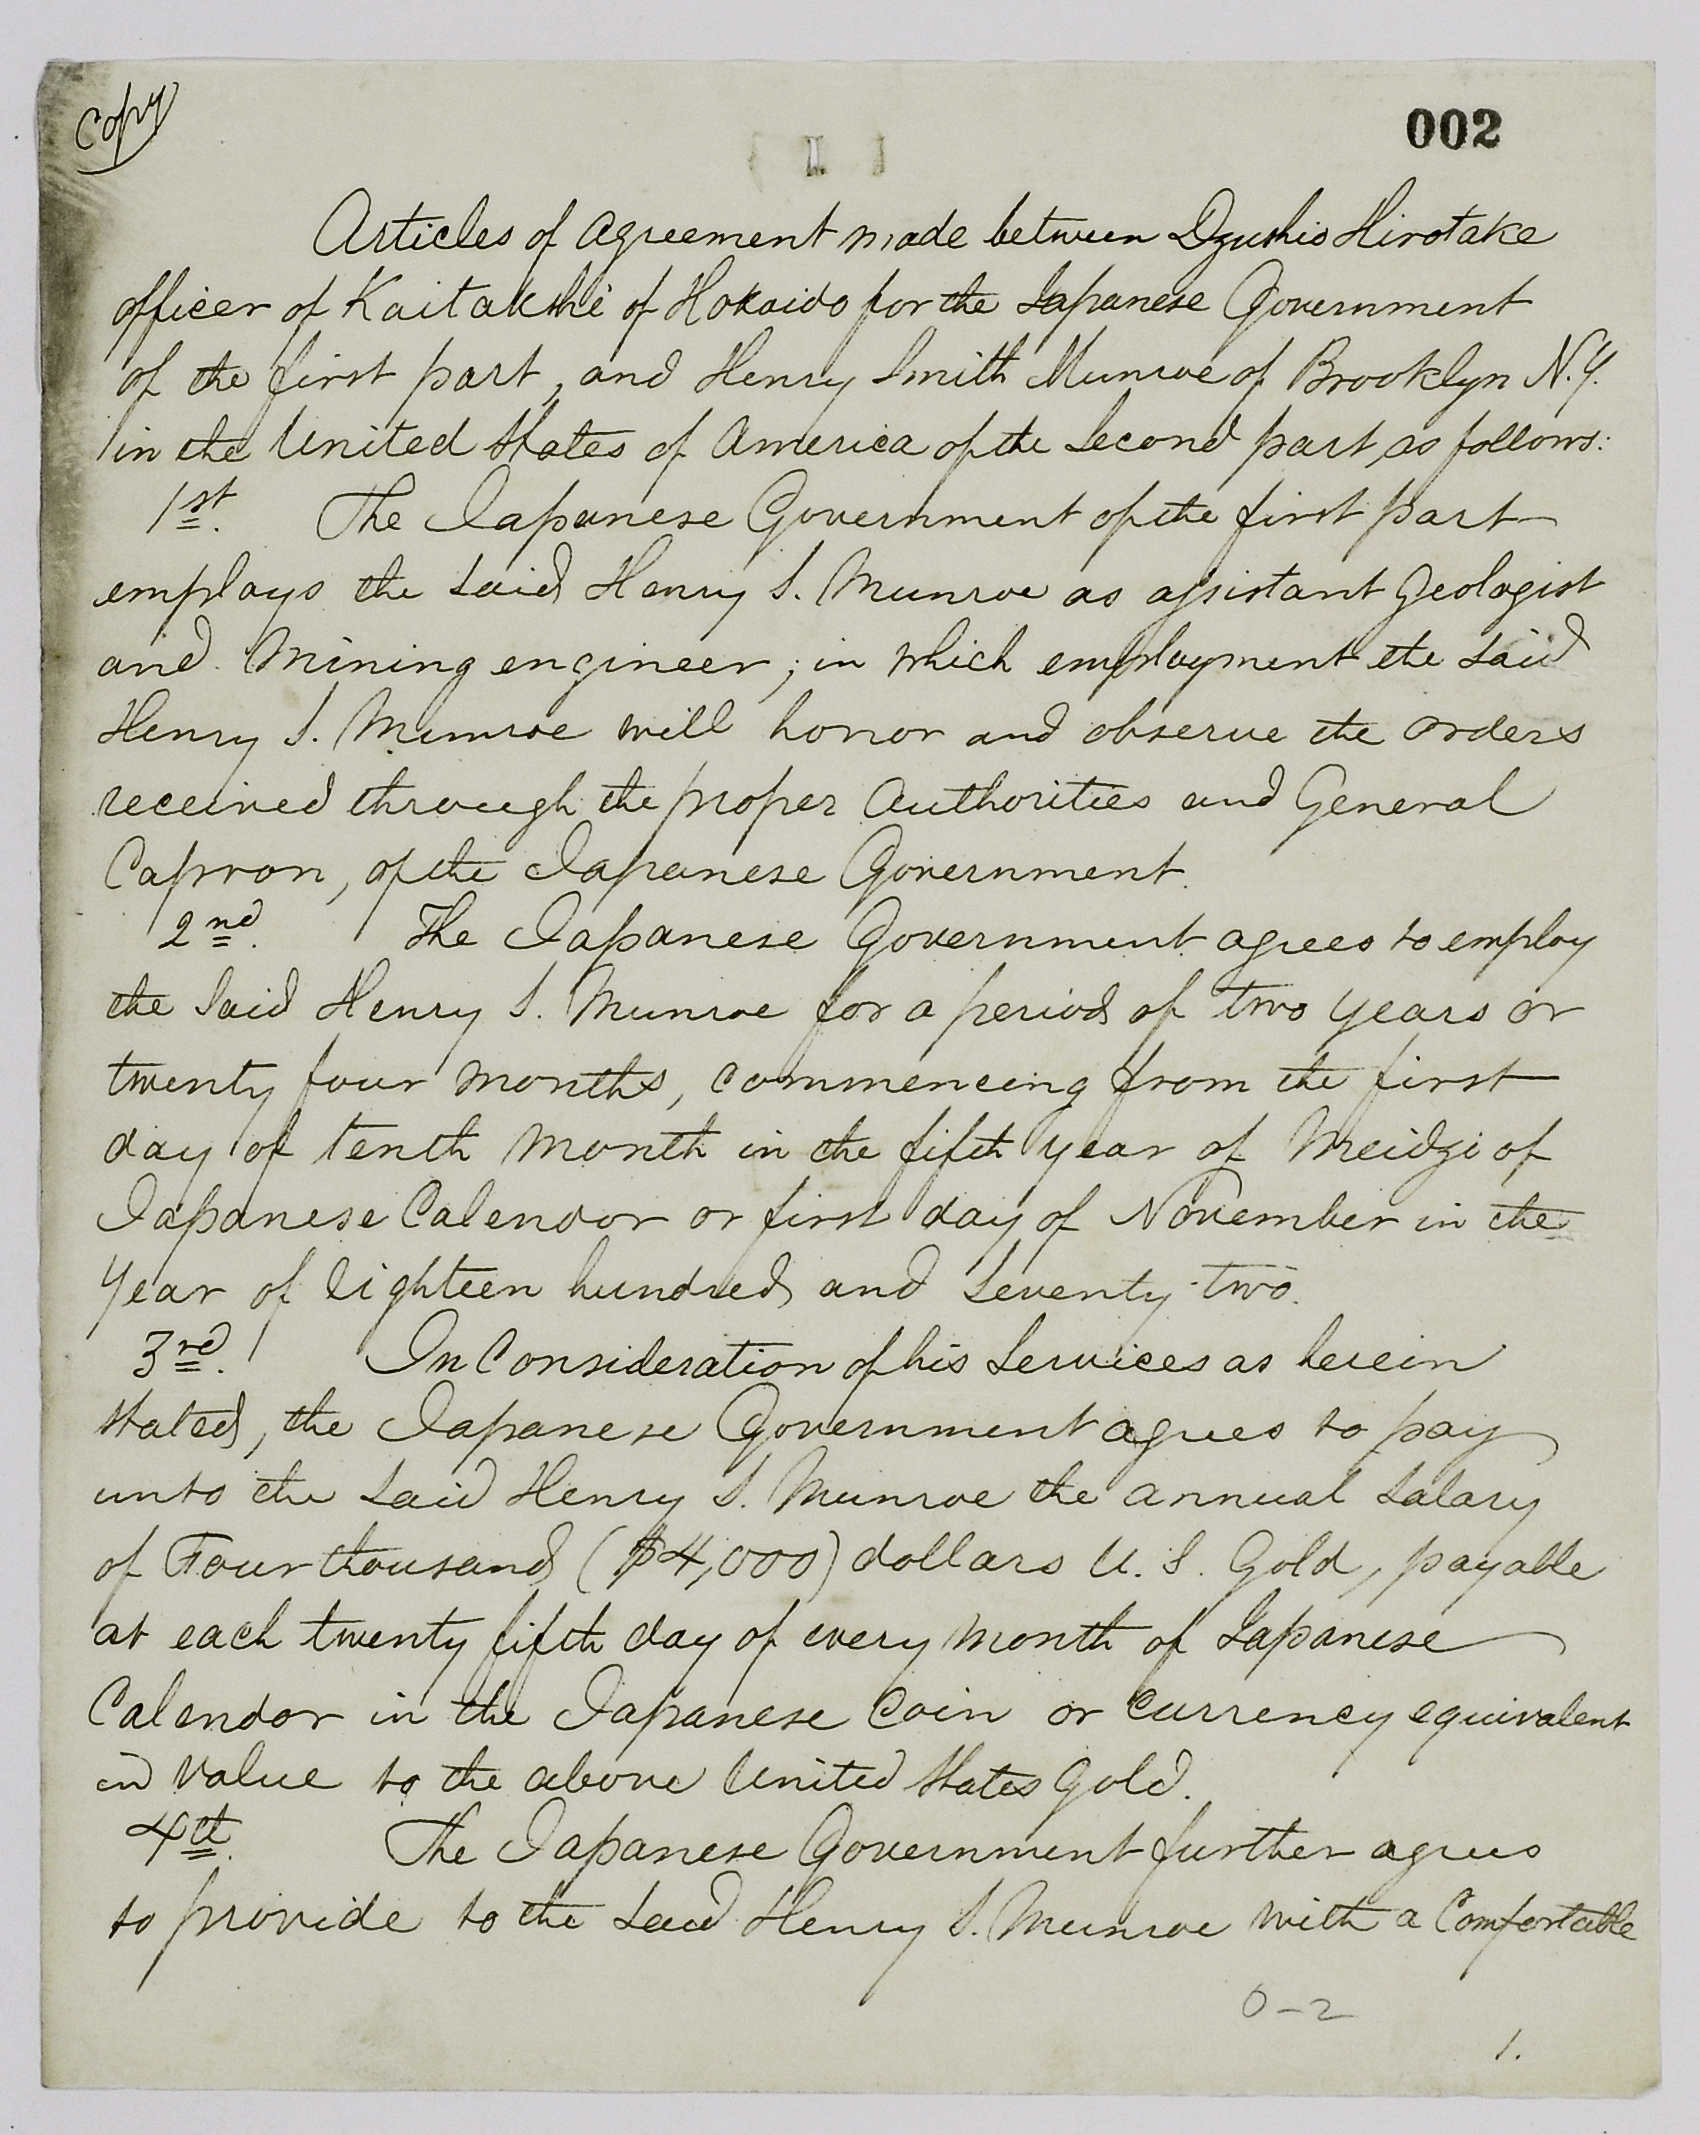 Copy
002
Articles of agreement made between Dzushio Hirotake
officer of Kaitakshi of Hokaido for the Japanese Government
of the first part, and Henry Smith Munroe of Brooklyn N.Y.
in the United States of America of the Second part, as follows:
1st. The Japanese Government of the first part
employs the said Henry S. Munroe as assistant Geologist
and Mining engineer; in which employment the said
Henry S. Munroe will honor and observe the orders
received through the proper Authorities and General
Capron, of the Japanese Government.
2nd. The Japanese Government agrees to employ
the said Henry S. Munroe for a period of two years or
twenty four months, commencing from the first
day of tenth month in the fifth year of Meidzi of
Japanese Calendar or first day of November in the
year of Eighteen hundred and Seventy two.
3rd. In Consideration of his Services as herein
stated, the Japanese Government agrees to pay
unto the said Henry S. Munroe the annual Salary
of Four thousand ($4,000) dollars U.S. Gold, payable
at each twenty fifth day of every month of Japanese
Calendar in the Japanese Coin or Currency equivalent
in value to the above United States Gold.
4th. The Japanese Government further agrees
to provide to the said Henry S. Munroe with a Comfortable
0-2
1.